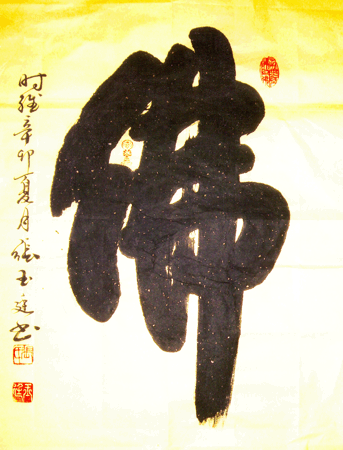 佛
时维辛卯夏月張玉廷书